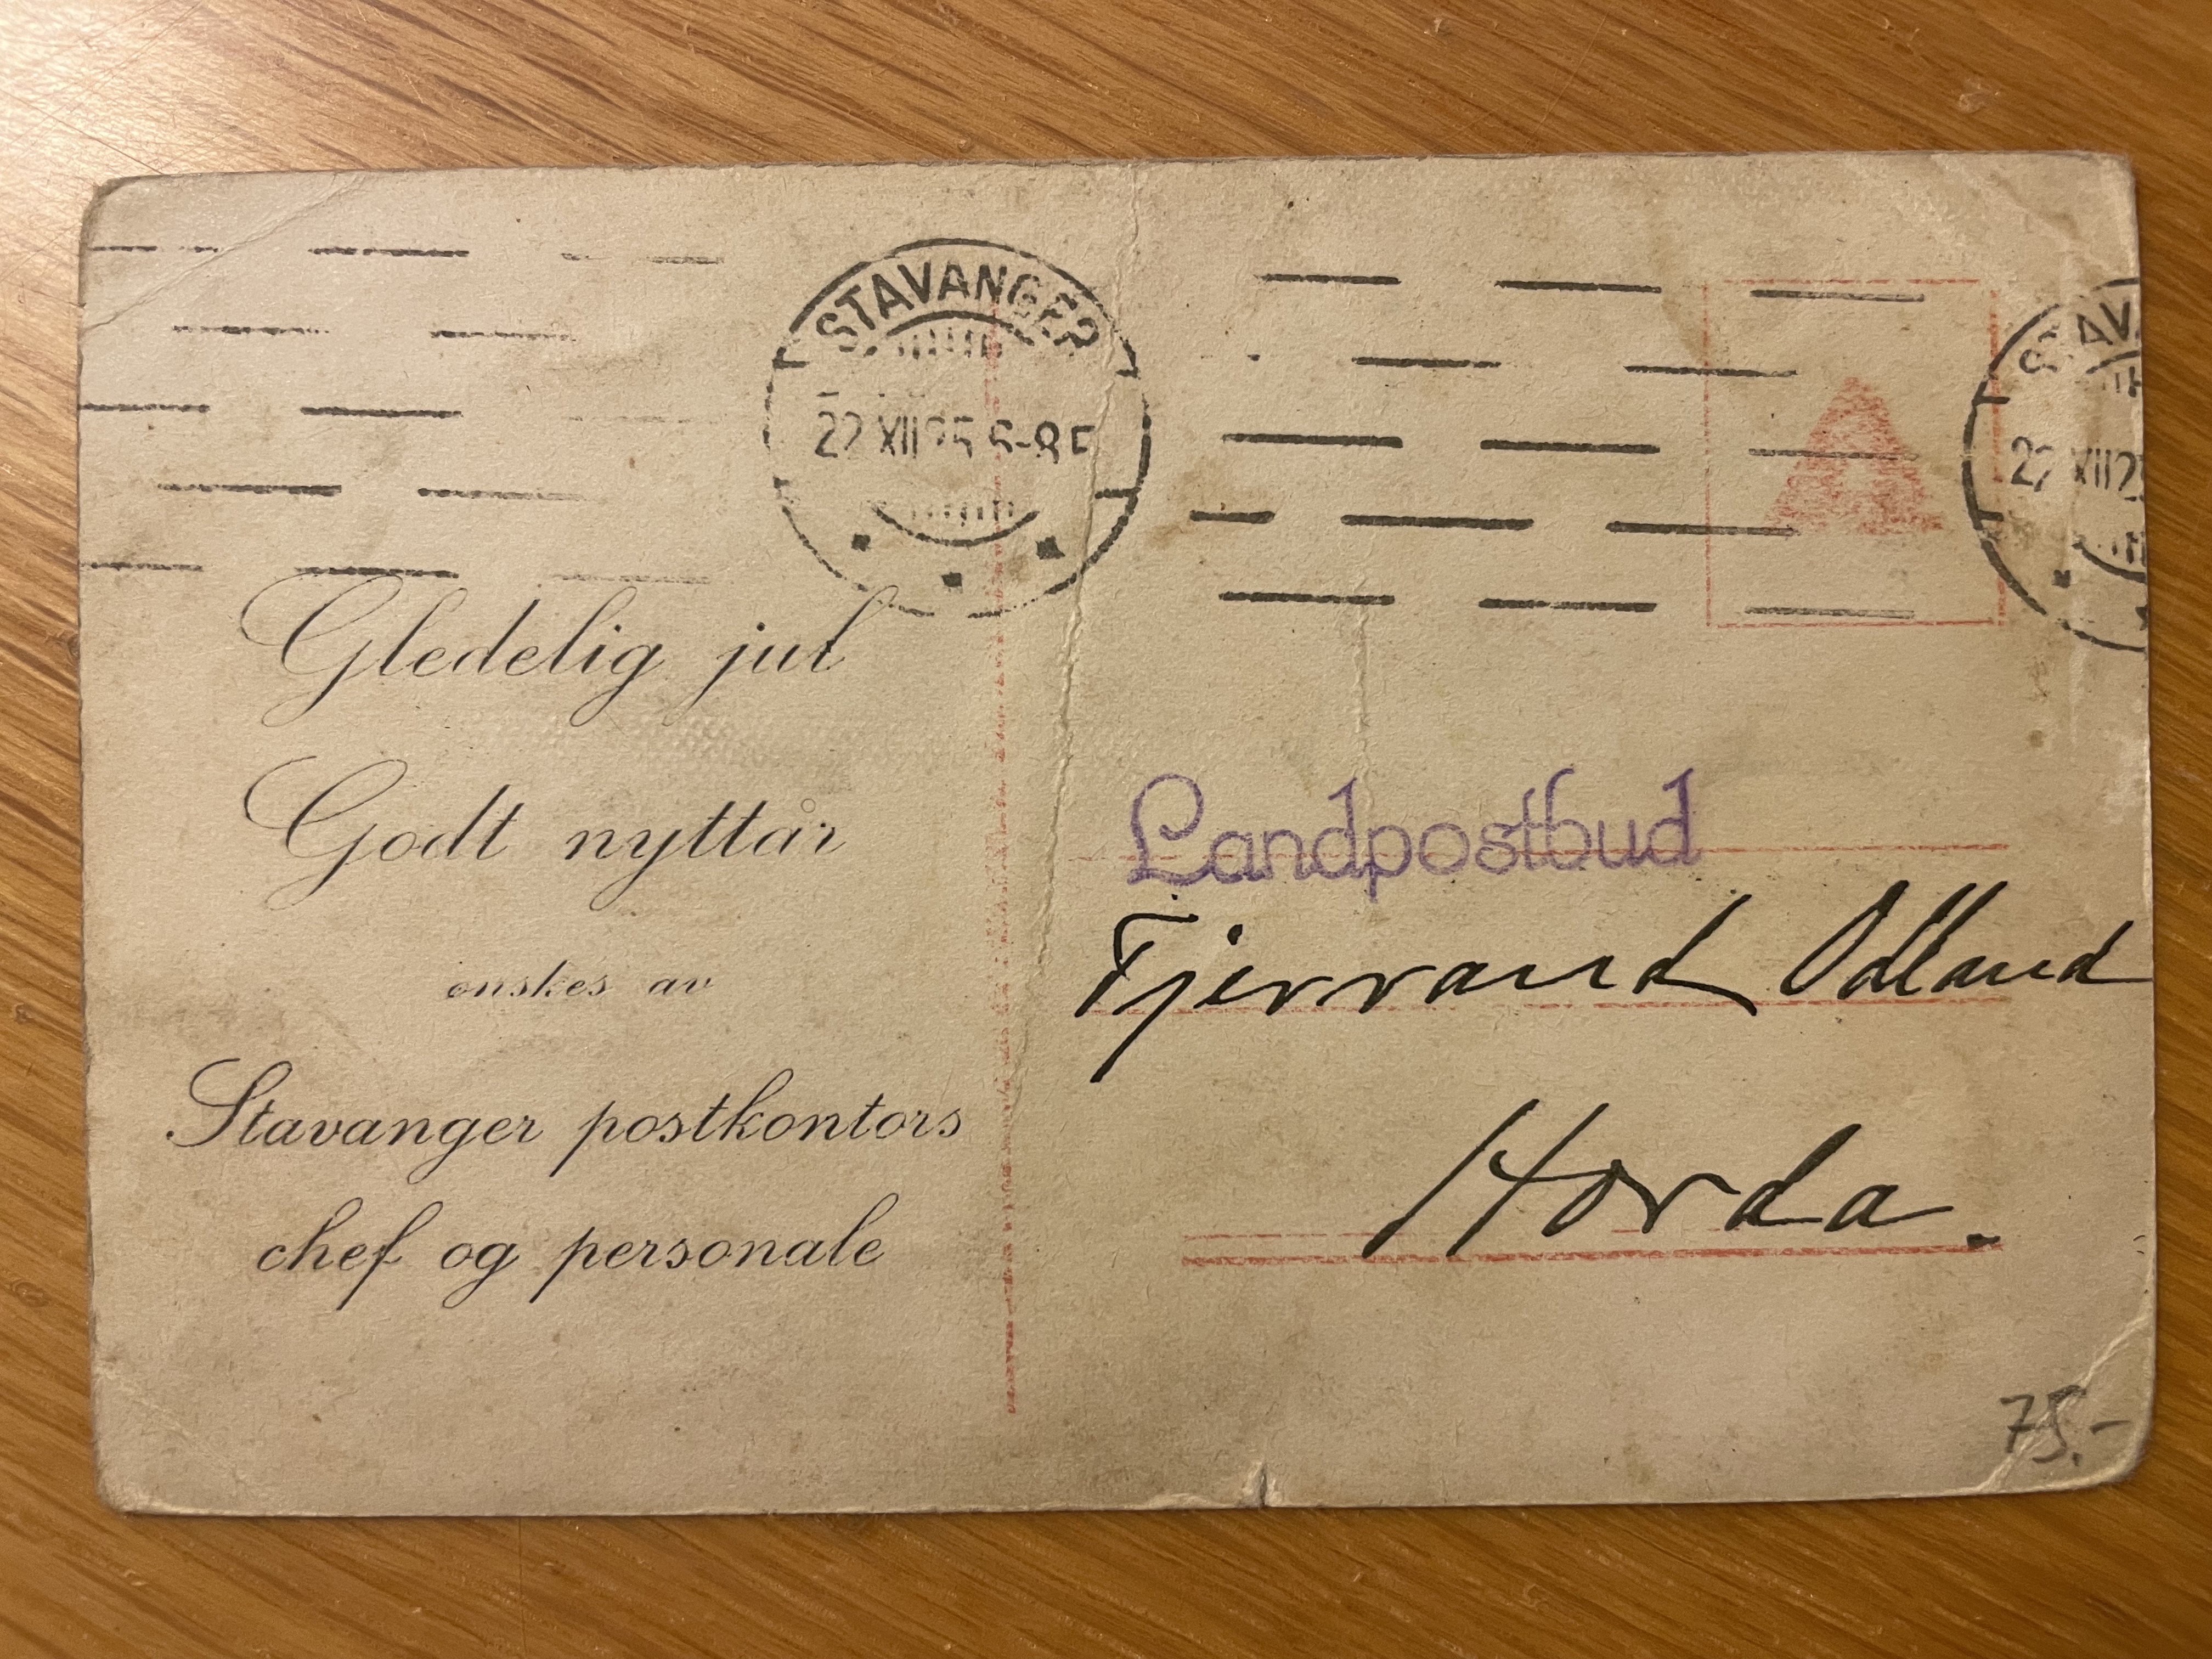 STAVANGER
22 XII 25 6-8 E
STAV
22 XII 2
Gledelig jul
Godt nyttår
ønskes av
Stavanger postkontors
chef og personale
Landpostbud
Fjervand Odland
Horda.
75.-